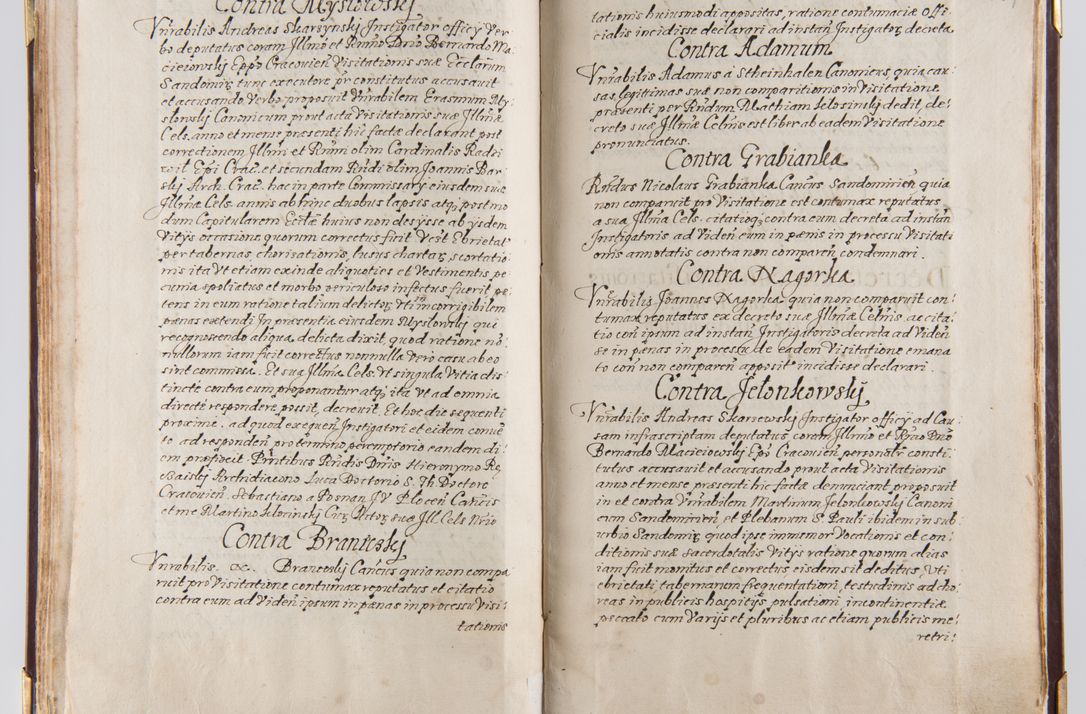 Contra Mysłowskj
Vnrabilis Andreas Skarzynskj Instigator officy Ver
bo deputatus coram Illmo et Rmno Dno Bernardo Ma
cieiowskj Eppo Cracouien̄ Visitationis suæ Ecclarum
Sandomir; tunc executore pr constitutus accusauit
et accusando Verbo proposuit Vnrabilem Erasmum My,
słowskj Canonicum prout acta Visitationis suæ Illmæ
Cels. anno et mense præsenti hic factæ declarant post
correctionem Illmi et Rmni olim Cardinalis Radzi
wił Epi Crac. et secundam Rndi olim Joannis Bar
skj Arch. Crac. hac in parte Commissarij eiusdem suæ
Illmæ Cels. annis ab hinc duobus lapsis atq; postmo
dum Capitularem Eccłæ huius non desÿsse ab ÿsdem
Vitÿs occasione quorum correctus fuit Vczt Ebrietat
per tabernas, chorisationis, lusus chartar; scortatio
nis ita Vt etiam exinde aliquoties et Vestimentis pe
cunia spoliatus et morbo periculoso infectus fuerit pe,
tens in eum ratione talium delictor; Vti incorrigibilem
pænas extendi In præsentia eiusdem Mysłowskj qui
recognoscendo aliqua delicta dixit quod ratione no
nullorum iam fuit correctus nonnulla Vero casu ab eo
sint commissa. Et sua Illma Cels. Vt singula Vitia dis
tincte contra eum proponantur atq; ita vt ad omnia
directe respondere possit, decreuit. Et hoc die sequenti
proxime. ad quod exequen̄ Instigatori et eidem conue
to ad responden̄ pro termino peremptorio eandem di
em præfixit. Pnntibus Rndis Dnis Hieronymo Re
Archidiacono Luca Doctorio S. Th. Doctore
Cracouien̄. Sebastiano a Poznan J V Plocen̄ Can̄cis
et me Martino Kłocinskj suæ Ill. Cels Nrio
Contra Branicskj
Vnrabilis. Brancoskj Can̄cus quia non compa
ruit pro Visitatione contumax reputatus et citatio
contra eum ad Viden̄ ipsum in pænas in processu Visi:
tationis
tationis huiusmodi appositas, ratione contumaciæ Offi
cialis incidisse declarari ad instan̄ Instigator; decreta
Contra Adamum
Vnrabilis Adamus à Stheinhalen Canonicus, quia cau
sas legitimas suæ non comparitionis in Visitatione
præuenti per Rndum Mathiam Kłosinskj dedit, de,
creto suæ Illmæ Celnis est liber ab eadem Visitatione
pronunciatus.
Contra Grabianka
Rndus Nicolaus Grabianka Can̄cus Sandomirien̄ quia
non comparuit pro Visitatione est contumax reputatus
a sua Illma Cels. citatioq; contra eum decreta ad instan̄
Instigatoris ad Viden̄ eum in pænis in processu Visitati
onis annotatis contra non comparen̄ condemnari.
Contra Nagorka
Vnrabilis Joannes Nagorka quia non comparuit con
tumax reputatus ex decreto suæ Illmæ Celnis ac cita:
tio con̄ ipsum ad instan̄ Instigatoris decreta ad Viden̄
se in pænas in processu de eadem Visitatione emana
to con̄ non comparen̄ apposit incidisse declarari.
Contra Jełonkowskj
Vnrabilis Andreas Skorzewskj Instigator officÿ ad Cau
sam infrascriptam deputatus coram Illmo et Rmo Dno
Bernardo Macieiowskj Epo Cracouien̄ personalr consti:
tutus accusauit et accusando prout acta Visitationis
anno et mense præsenti hic factæ denunciant proposuit
in et contra Vnrabilem Martinum Jełonkowskj Canoni
cum Sandomirien̄, et Plebanum S. Pauli ibidem in sub
urbio Sandomir; quod ipse immemor Vocationis et con:
ditionis suæ sacerdotalis Vitÿs ratione quorum alias
iam fuit monitus et correctus eisdem sit deditus, Vti
ebrietati tabernarum frequentationi, testudinis ad cho,
reas in publicis hospitÿs pulsationi, incontinentiæ
peccato cum Varijs et pluribus ac etiam publicis me,
retri: